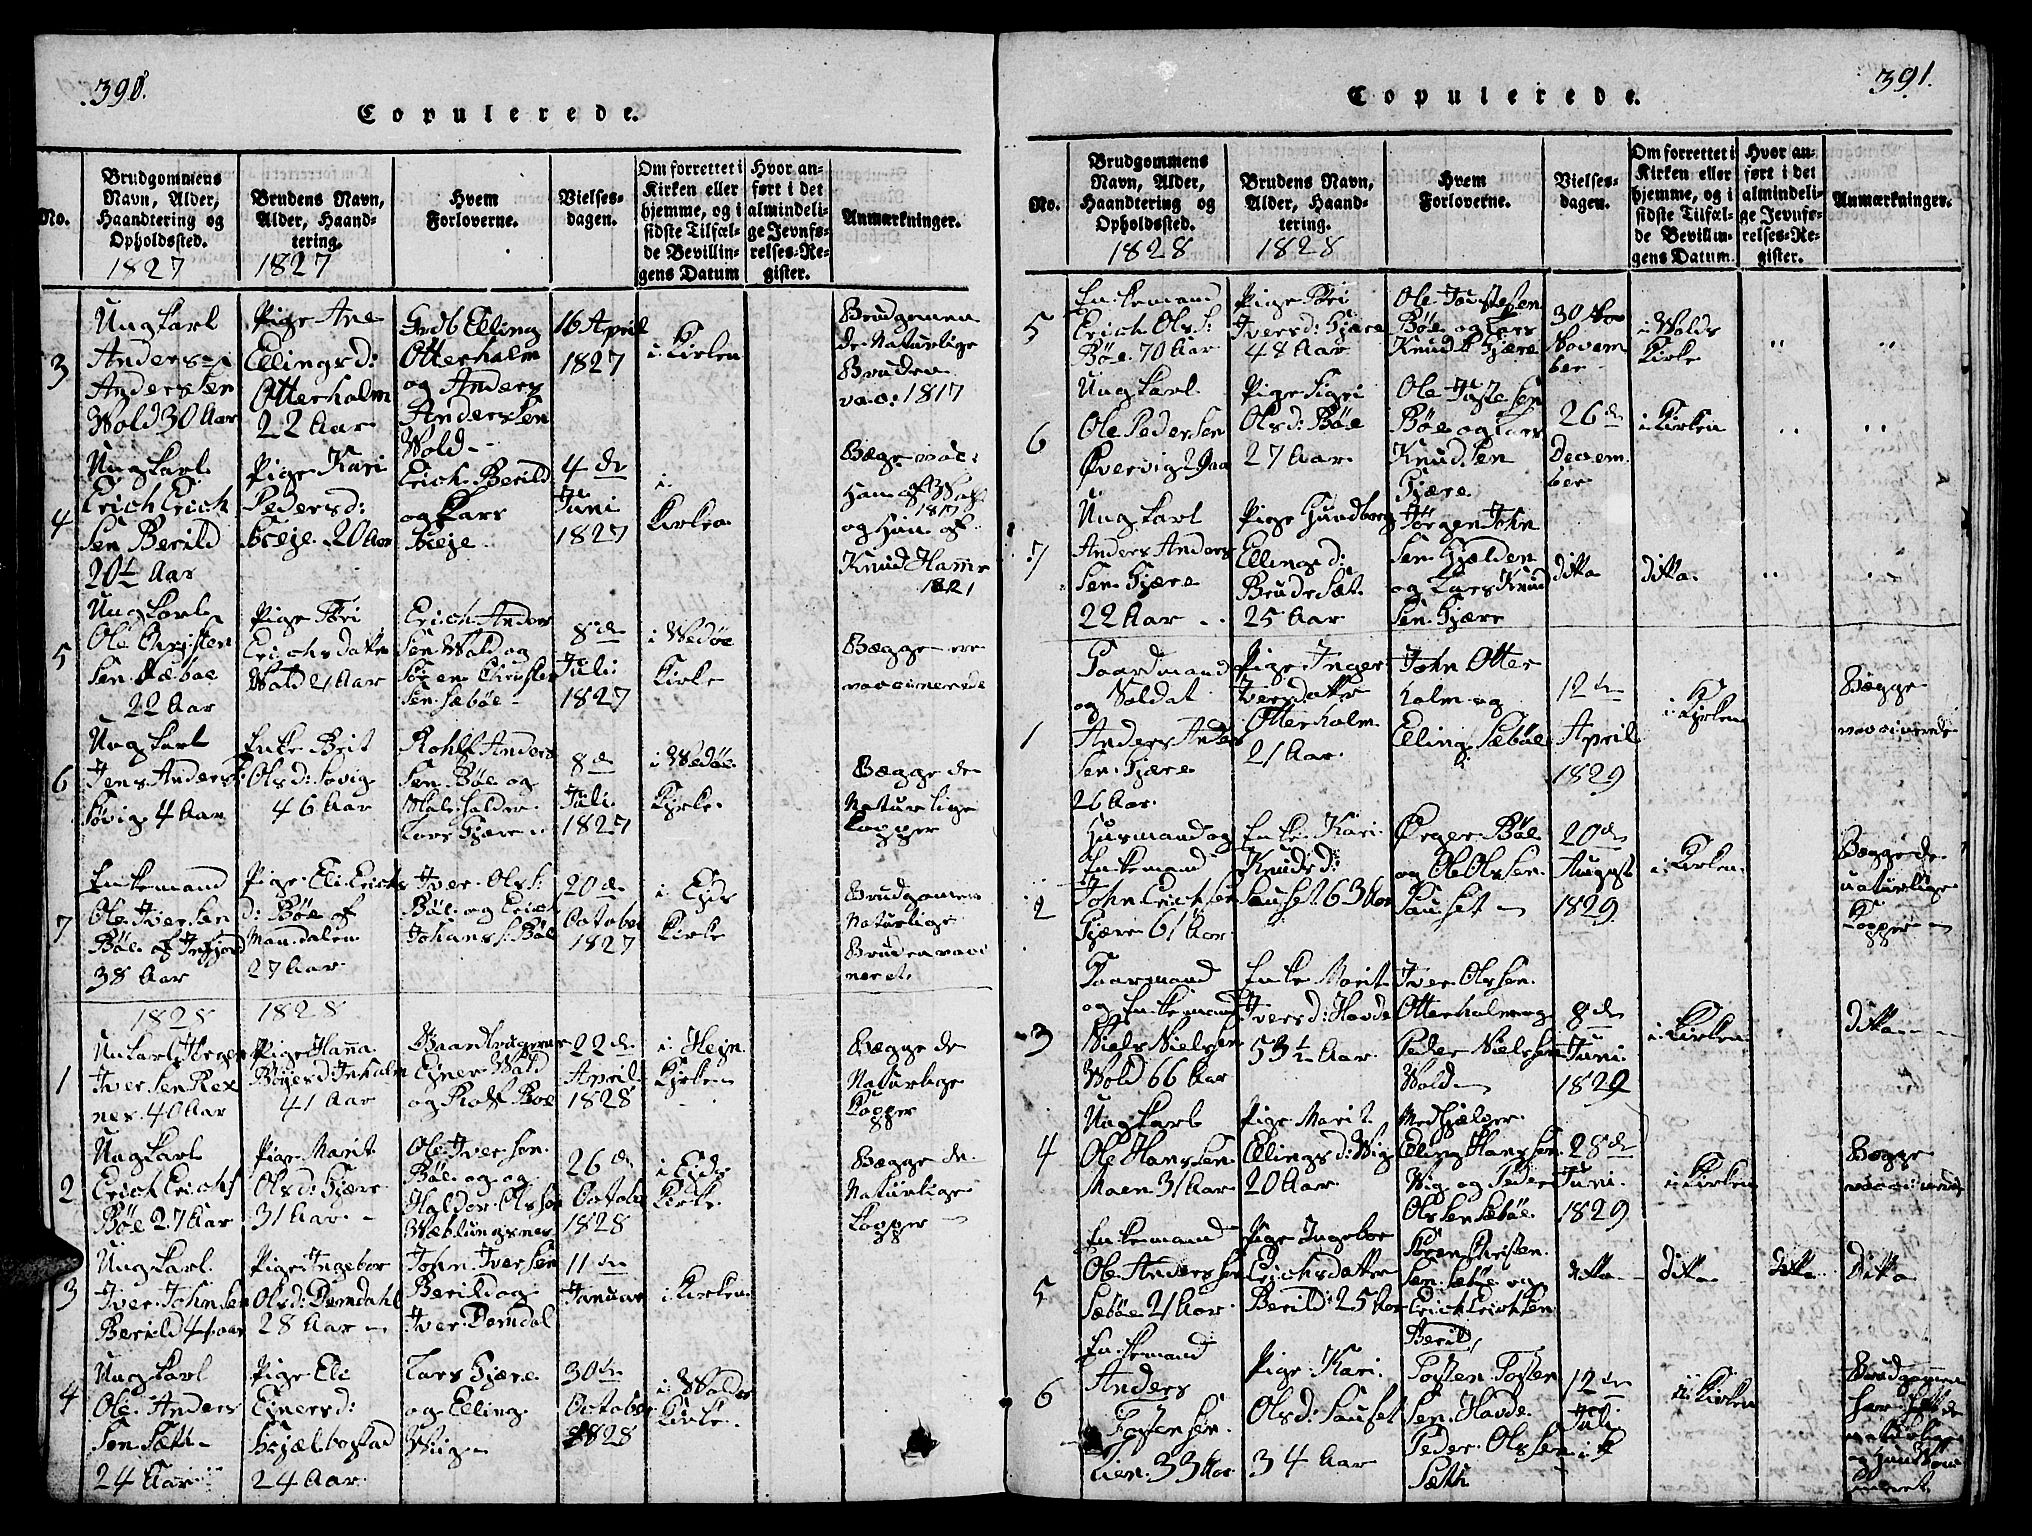 390.
Copulerede.
No.
Brudgommens
Navn, Alder,
Haandtering og
Opholdssted.
1827
Brudens Navn,
Alder, Haand-
tering.
1827
Hvem
Forloverne.
Vielses-
dagen.
Om forrettet i
Kirken eller
hjemme, og i
sidste Tilfæl-
de Bevillin-
gens Datum
Hvor an-
ført i det
almindeli-
ge Jevnfø-
relses-Re-
gister.
Anmærkninger.
3
Ungkarl
Anders
Andersen
Wold 30 Aar
Pige Ane
Ellingsd:
Otterholm
22 Aar
Grdb Elling
Otterholm
og Anders
Andersen
Wold
16 April
1827
i Kirken
Brudgomen
de Naturlige
Bruden
vac: 1817
4
Ungkarl
Erich Erich
Sen Berild
20½ Aar
Pige Kari
Pedersd:
20 Aar
Erich Berild
og Lars
4 de
Juni
1827
i
Kirken
Bægge vac:
1817
og Hun af
Knud Hamre
1821
5
Ungkarl
Ole Christen
Sen Sæbøe
22 Aar
Pige Tøri
Erichsdatter
Wold 21 Aar
Erich Anders
Sen Wold og
Søren Christen
Sen Sæbøe
8 de
Juli
1827
i Wedøe
Kirke
Bægge ere
vaccinerede
6
Ungkarl
Jens Anders:
Søvig 4 Aar
Enke Brit
Olsd: Søvig
46 Aar
Rohlf Anders
Sen Bøe og
Lars Gjære
8 de
Juli
1827
i Wedøe
Kirke
Bægge de
Naturlige
Kopper
7
Enkemand
Ole Iversen
Bøe af Isfjord
38 Aar
Pige Eli Erichs
d: Bøe af
Mandalen
27 Aar
Iver Ols:
Bøe og Erich
Johans: Bøe
20 de
October
1827
i Eids
Kirke
Brudgomen
Naturlige
Bruden vacci
neret
1828
1828
1
Unkarl Jørgen
Iversen Rex
nes 40 Aar
Pige Hanna
41 Aar
Ejner Wold
og Rolf Bøe
22 de
April
1828
i Hejn
Kirken
Bægge de
Naturlige
Kopper
2
Ungkarl
Erich Erichs
Bøe 27 Aar
Pige Marit
Olsd: Gjære
31 Aar
Ole Iversen
Bøe og og
Haldor Olsen
Wæblungsnes
26 de
Octobr
1828
i Eids
Kirke
Bægge de
Naturlige
Kopper
3
Ungkarl
Iver Johnsen
Berild
Pige Ingebor
Olsd: Dømdahl
28 Aar
John Iversen
Berild og
Iver Dømdal
11 de
Januar
i Kirken
4
Ungkarl
Ole Anders
Sen Sæth
24 Aar
Pige Eli
Ejnersd:
Hjelbostad
24 Aar
Lars Gjære
og Elling
Wiig
30 de
October
1828
i Wolds
Kirke
391.
Copulerede.
No.
Brudgommens
Navn, Alder,
Haandtering og
Opholdssted.
1828
Brudens Navn,
Alder, Haand-
tering.
1828
Hvem
Forloverne.
Vielses-
dagen.
Om forrettet i
Kirken eller
hjemme, og i
sidste Tilfæl-
de Bevillin-
gens Datum.
Hvor an-
ført i det
almindeli-
ge Jevnfø-
relses-Re-
gister.
Anmærkninger.
5
Enkemand
Erich Ols:
Bøe 70 Aar
Pige Tøri
Iversd: Gjære
48 Aar
Ole Jostesen
Bøe og Lars
Knuds Gjære
30 Nov
Novem
ber
i Wolds
Kirke
"
"
6
Ungkarl
Ole Pedersen
Øvervig 29 aa
Pige Sigri
Olsd: Bøe
27 Aar
Ole Jostesen
Bøe og Lars
Knudsen
Gjære
26 de
Decem
ber
i Kirken
"
"
7
Ungkarl
Anders Anders
Sen Gjære
22 Aar
Pige Gundborg
Ellingsd:
Brudesæt
25 Aar
Jørgen John
Sen Hjelden
og Lars Knud
Sen Gjære
ditto
ditto
"
"
1
Gaardmand
og Soldat
Anders Anders
Sen Gjære
26 Aar
Pige Inger
Iversdatter
Otterholm
21 Aar
John Otter
holm og
Elling Sæbøe
12 de
April
1829
i Kirken
Bægge
vaccinerede
2
Husmand og
Enkemand
John Erichsen
Gjære 61 Aar
Enke Kari
Knudsd:
Sauset 63 Aar
Ørger Bøe
og Ole Olsen
Sauset
20 de
August
1829
i Kirken
Bægge de
naturlige
Kopper
3
Gaarmand
og Enkemand
Niels Nielsen
Wold 66 Aar
Enke Marit
Iversd: Hovde
53½ Aar
Iver Olsen
Otterholm og
Peder Nielsen
Wold
8 de
Juni
1829
i Kirken
ditto
4
Ungkarl
Ole Hansen
Moen 31 Aar
Pige Marit
Ellingsd: Wig
20 Aar
Medhjelper
Elling Hansen
Wig og Peder
Olsen Sæbøe
28 de
Juni
1829
i Kirken
Bægge
5
Enkemand
Ole Andersen
Sæbøe 21 Aar
Pige Ingebor
Erichsdatter
Berild 25 Aar
Søren Christen
Sen Sæbøe og
Erich Erichsen
Berild
ditto
ditto
ditto
Ditto
6
Enkemand
Anders
Tostensen
Lien 33 Aar
Pige Kari
Olsd: Sauset
34 Aar
Tosten Tosten
Sen Hovde
Peder Olsen
Sæth
12 de
Juli
i Kirken
Brudgomen